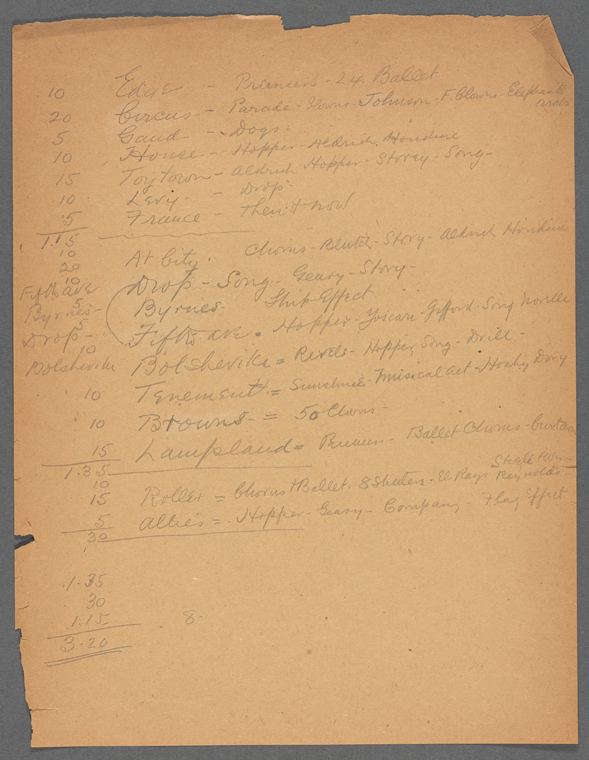 10 Edge - 24 Ballet
20 Circus - Parade - Johnson - F. Clowns - Elephants
5 Gaud - Dogs -
10 House - Hopper - Aldrich
15 Toytown - Aldrich Hopper - Story - Song -
10 Levy - Drop -
5 France - Then & now
1.15
10 At City. Chorus - Story - Aldrich
20
Fifth ave 10 Drop - Song - Geary - Story -
Byrnes 5 Byrnes - Ship Effect
Drop - 5 Fifth ave - Hopper - Gifford - Song
Bolshevike 10 Bolshevike = Hopper Song - Drill -
10 Tenement = Sunshine - Musical act -
10 Browns = 50 Clowns -
15 Lampland = Ballet Chorus -
1.35
10
15 Roller = Chorus & Ballet - 8 Skaters - El Rays Reynolds -
5 Allies = Hopper - Geary - Company - Flag Effect
30
1.35
30
1.15 8-
3.20